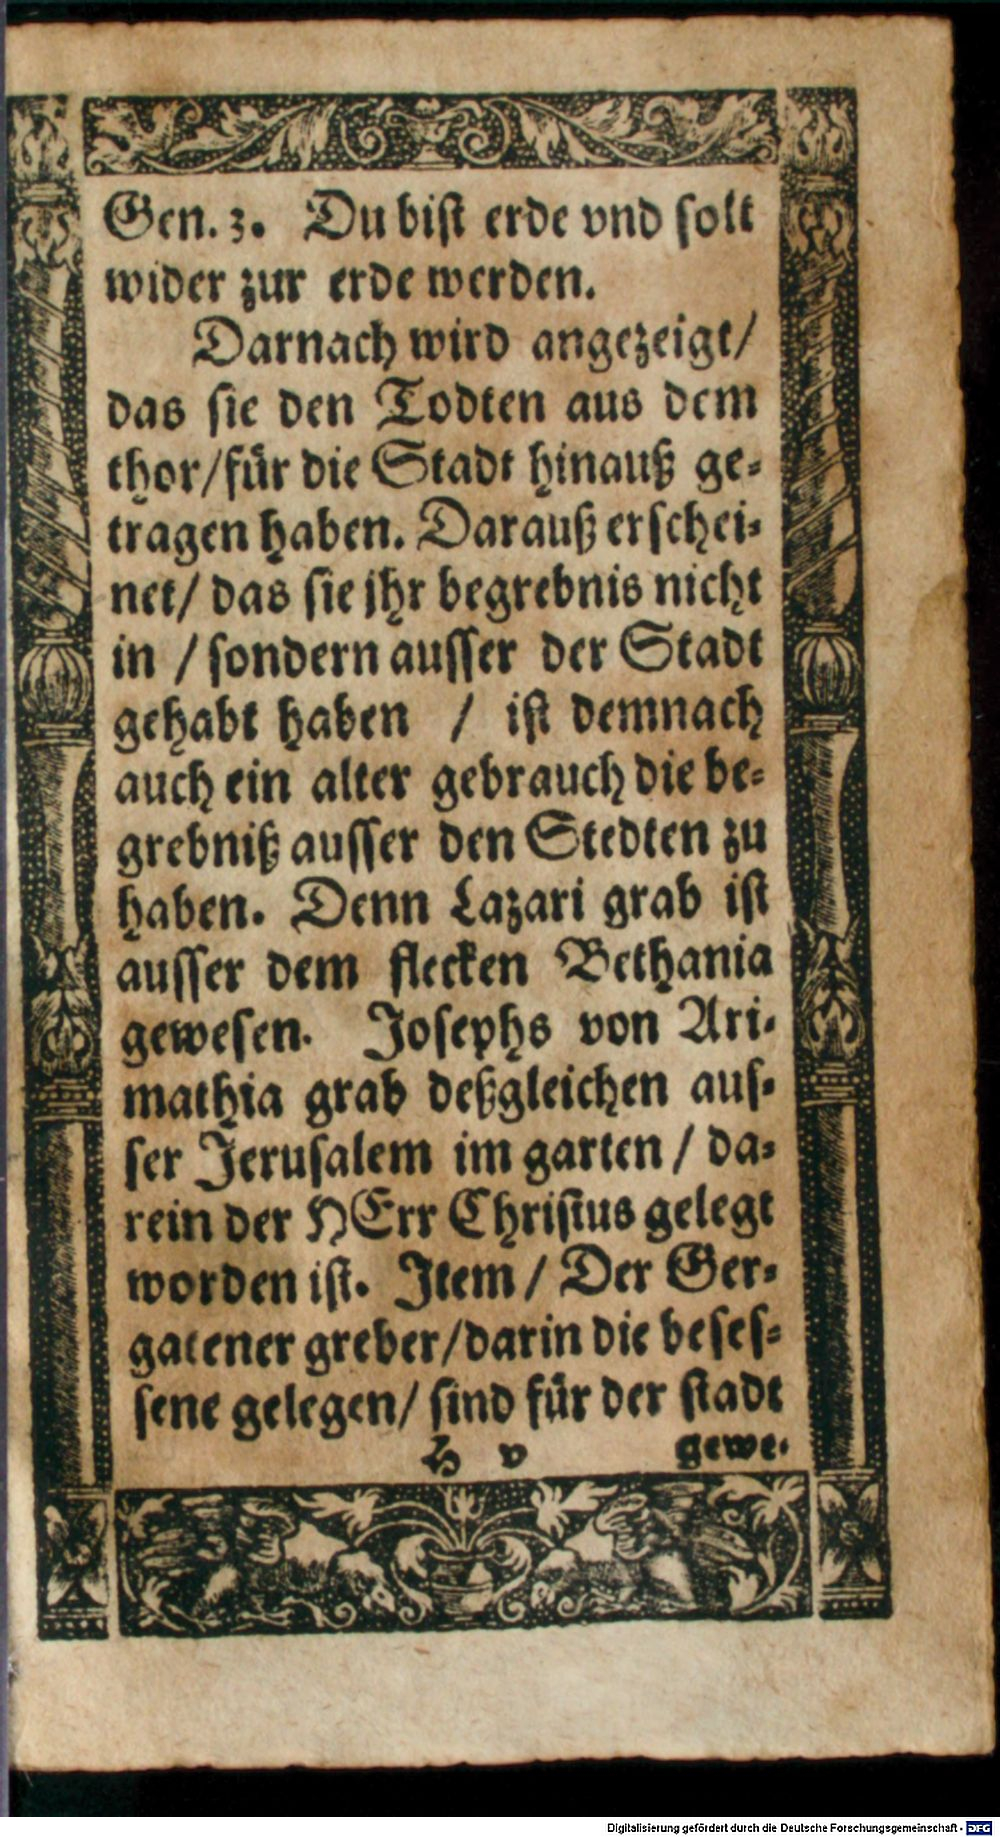 Gen. 3. Du bist erde vnd solt
wider zur erde werden.
Darnach wird angezeigt/
das sie den Todten aus dem
thor/für die Stadt hinauß ge=
tragen haben. Darauß erschei=
net/ das sie jhr begrebnis nicht
in / sondern ausser der Stadt
gehabt haben / ist demnach
auch ein alter gebrauch die be=
grebniß ausser den Stedten zu
haben. Denn Lazari grab ist
ausser dem flecken Bethania
gewesen. Josephs von Ari=
mathia grab deßgleichen aus=
ser Jerusalem im garten / da=
rein der HErr Christus gelegt
worden ist. Item / Der Ger=
gatener greber/darin die beses=
sene gelegen/ sind für der stadt
H v gewe=
Digitalisierung gefördert durch die Deutsche Forschungsgemeinschaft - DFG